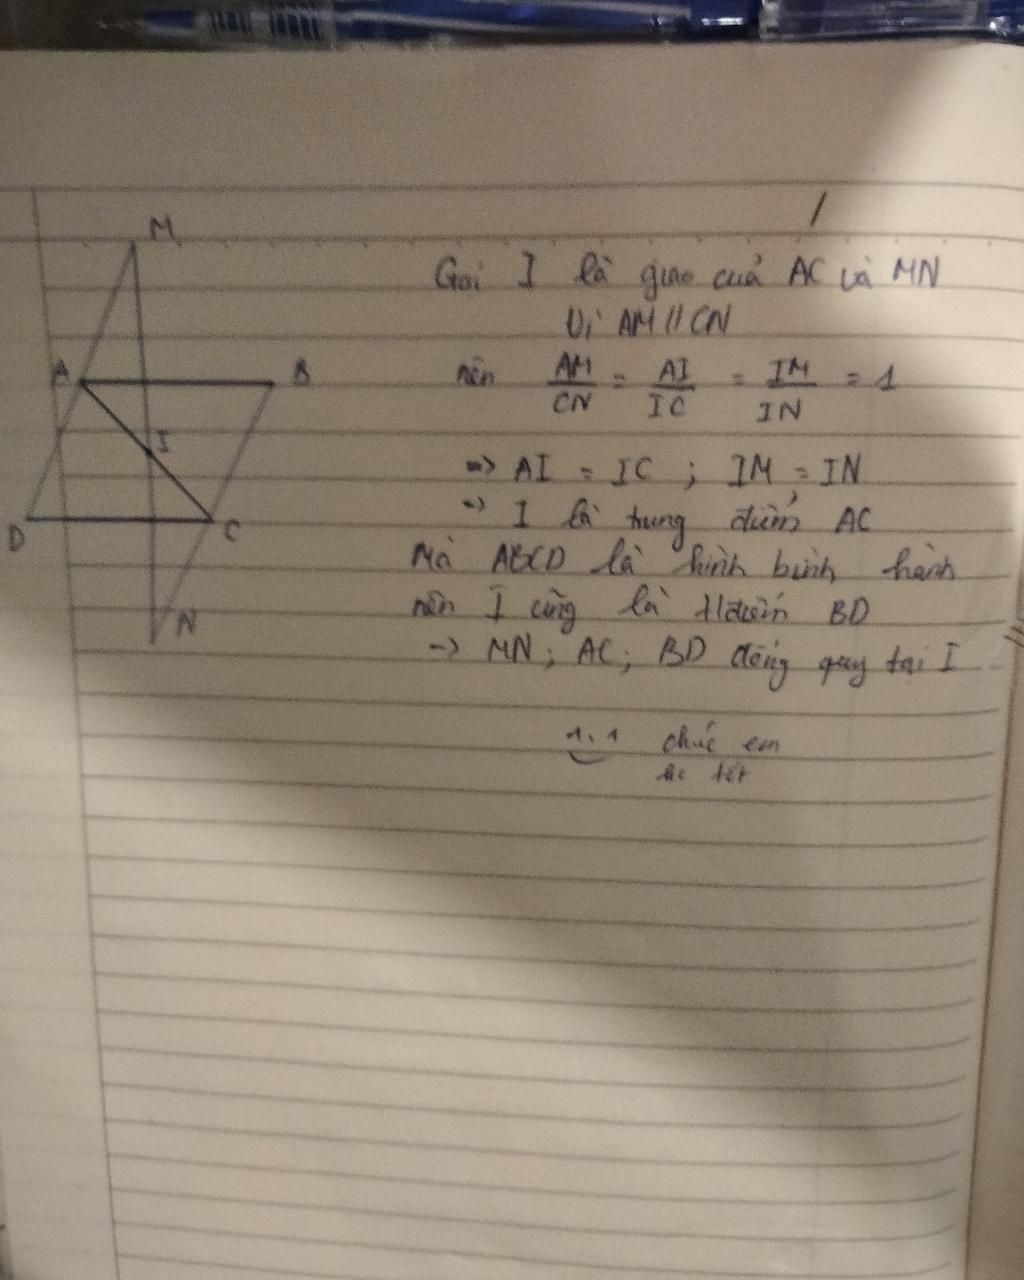 M
A
B
I
D
C
N
Gọi I là giao của AC và MN
Vì AM // CN
nên AM/CN = AI/IC = IM/IN = 1
=> AI = IC ; IM = IN
=> I là trung điểm AC
Mà ABCD là hình bình hành
nên I cũng là điểm BD
-> MN ; AC ; BD đồng quy tại I
chúc em
tốt